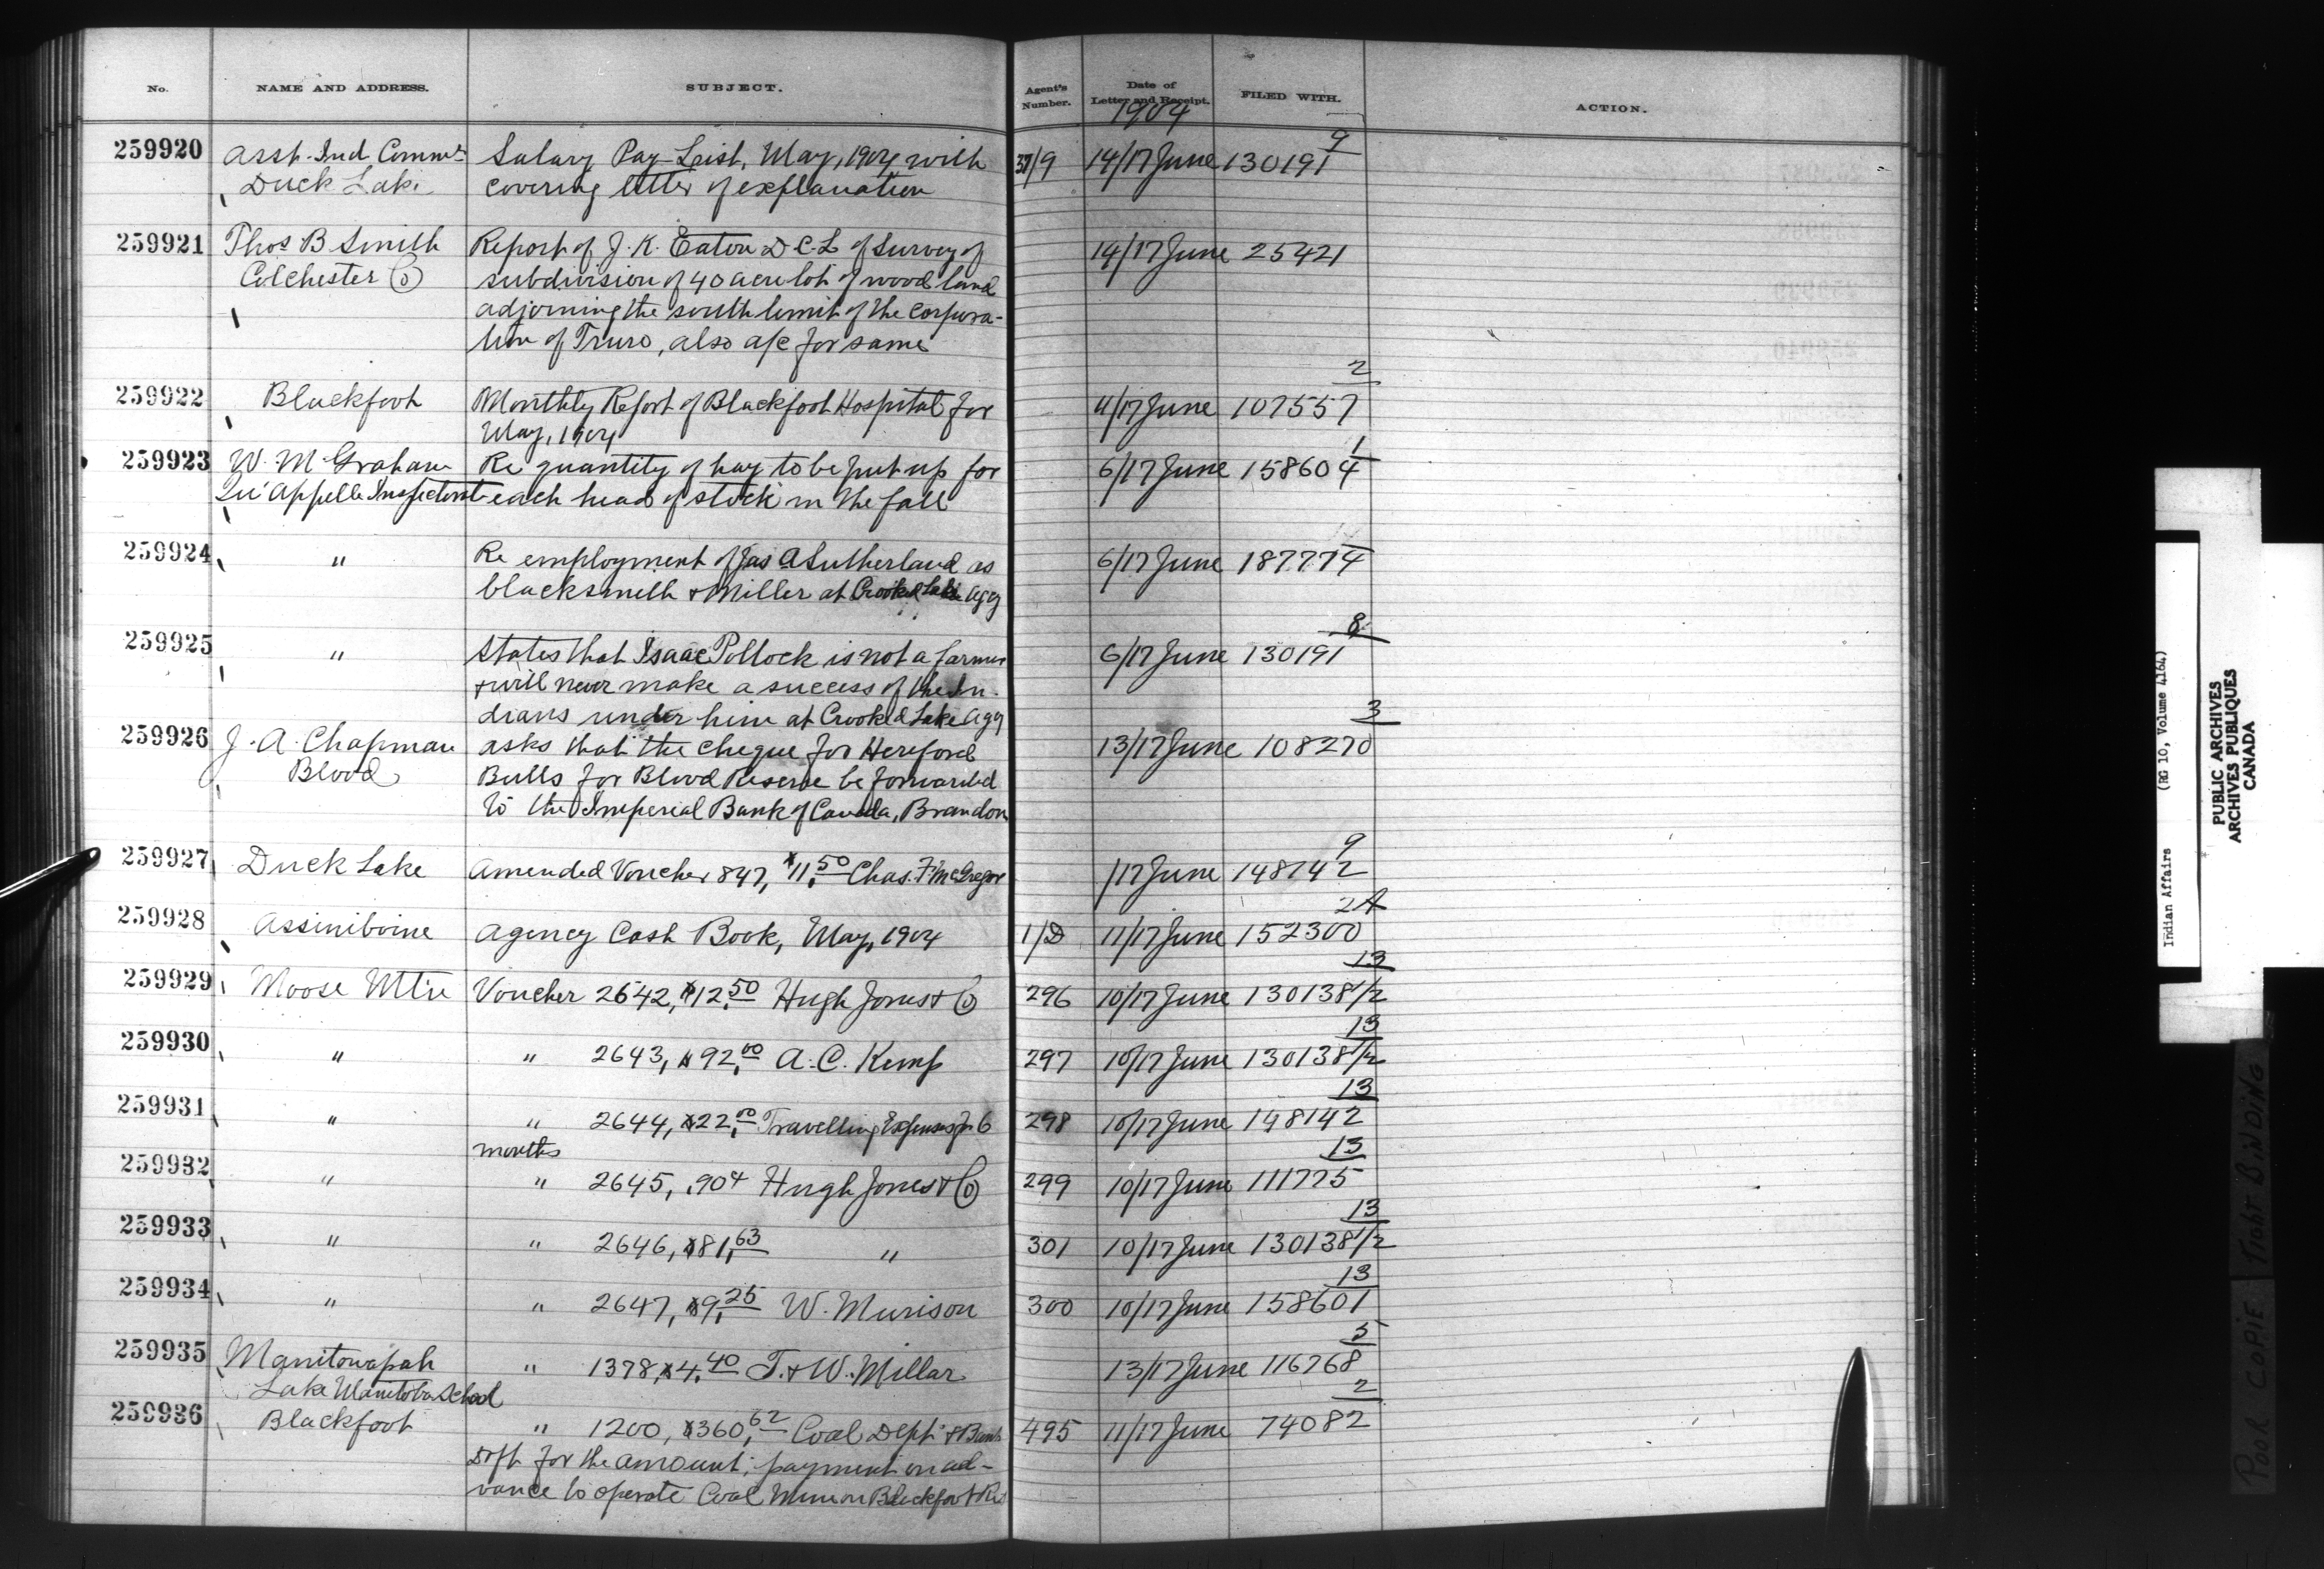 No. NAME AND ADDRESS. SUBJECT. Agent's Number. Date of Letter and Receipt. FILED WITH. ACTION.
1904
259920 Asst. Ind. Commr Salary Pay-List, May, 1904 with 37/9 14/17 June 130191 9
Duck Lake covering letter of explanation
259921 Thos B Smith Report of J. K. Eaton D.C.L of Survey of 14/17 June 25421
Colchester Co subdivision of 40 acre lot of wood land
adjoining the south limit of the Corpora-
tion of Truro, also a/c for same
259922 Blackfoot Monthly Report of Blackfoot Hospital for 4/17 June 107557 2
May, 1904
259923 W. M. Graham Re quantity of hay to be put up for 6/17 June 158604 1
Qu'Appelle Inspectorate each head of stock in the fall
259924 " Re employment of Jas A Sutherland as 6/17 June 187774
blacksmith & Miller at Crooked Lake Agy
259925 " States that Isaac Pollock is not a farmer 6/17 June 130191 8
& will never make a success of the In-
dians under him at Crooked Lake Agy
259926 J. A. Chapman asks that the cheque for Hereford 13/17 June 108270 3
Blood Bulls for Blood Reserve be forwarded
to the Imperial Bank of Canada, Brandon
259927 Duck Lake Amended Voucher 847, $11.50 Chas. F. McGregor /17 June 148142 9
259928 Assiniboine Agency Cash Book, May, 1904 1/D 11/17 June 152300 2A
259929 Moose Mtn Voucher 2642, $12.50 Hugh Jones & Co 296 10/17 June 130138 1/2 13
259930 " " 2643, $92.00 A. C. Kemp 297 10/17 June 130138 1/2 13
259931 " " 2644, $22.00 Travelling Expenses for 6 298 10/17 June 148142 13
months
259932 " " 2645, .90¢ Hugh Jones & Co 299 10/17 June 111775 13
259933 " " 2646, $81.63 " 301 10/17 June 130138 1/2 13
259934 " " 2647, $9.25 W. Murison 300 10/17 June 158601 13
259935 Manitowapah " 1378, $4.40 T. & W. Millar 13/17 June 116768 5
Lake Manitoba School
259936 Blackfoot " 1200, $360.62 Coal Dept & Bank 495 11/17 June 74082 2
Dft for the amount; payment on ad-
vance to operate Coal Mine on Blackfoot Res
Indian Affairs (RG 10, Volume 4164)
PUBLIC ARCHIVES
ARCHIVES PUBLIQUES
CANADA
POOR COPIE TIGHT BINDING